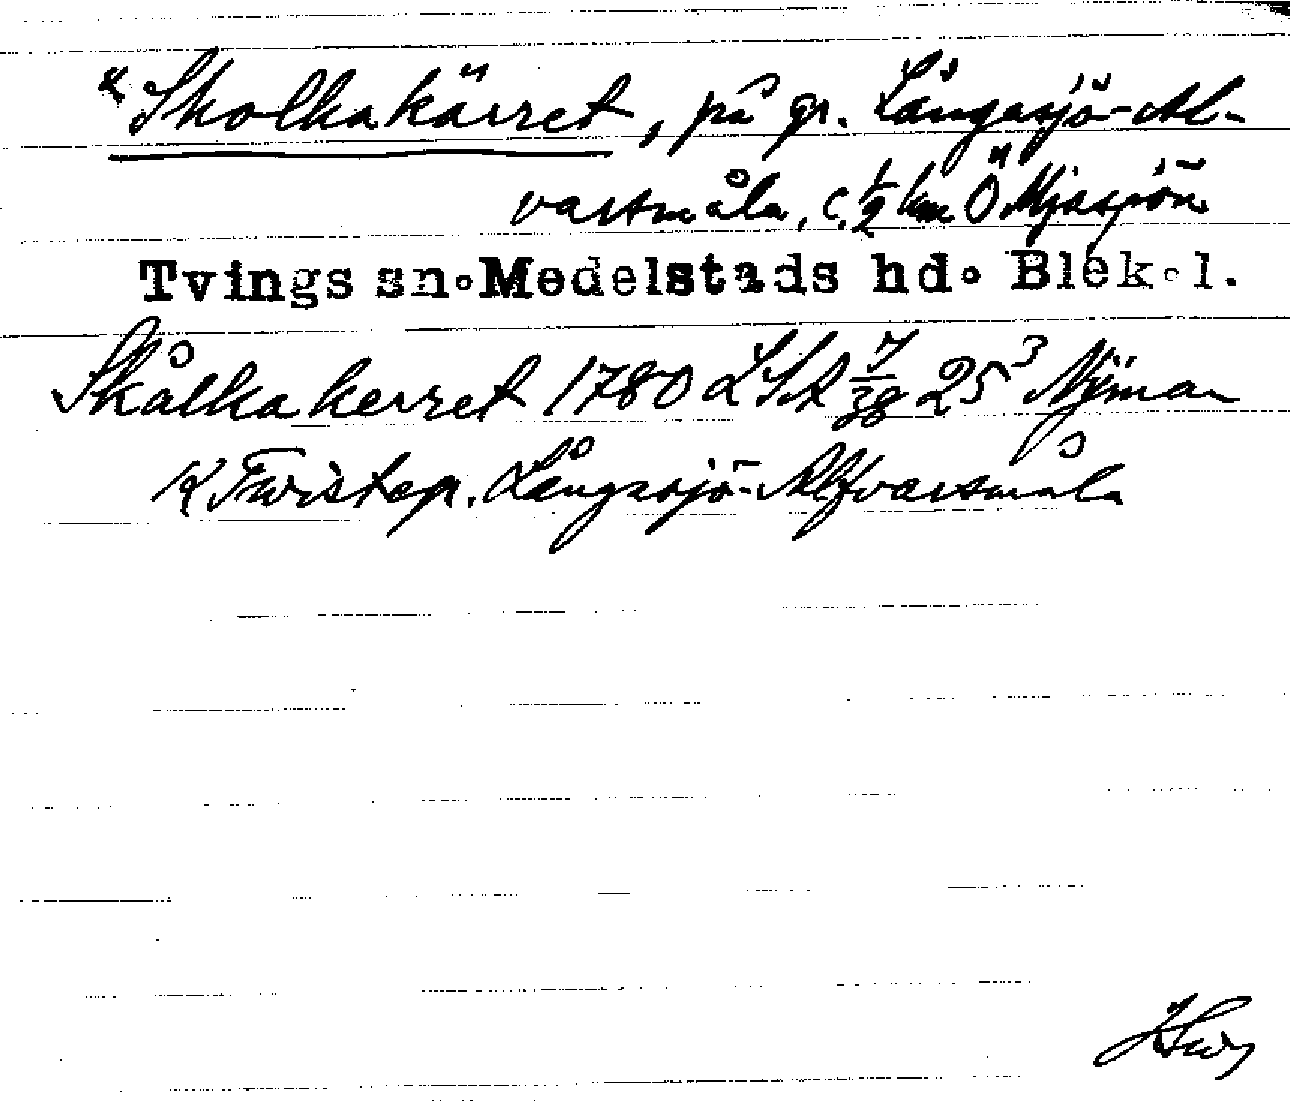 x Skolkakärret, på gr. Långasjö-Al-
varsmåla, c. 1/2 km Ö Mjasjön
Tvings sn. Medelstads hd. Blek. l.
Skålkakerret 1780 LSA 7/38 25³ Nÿman
K Twistep. Långasjö-Alfvarsmåla